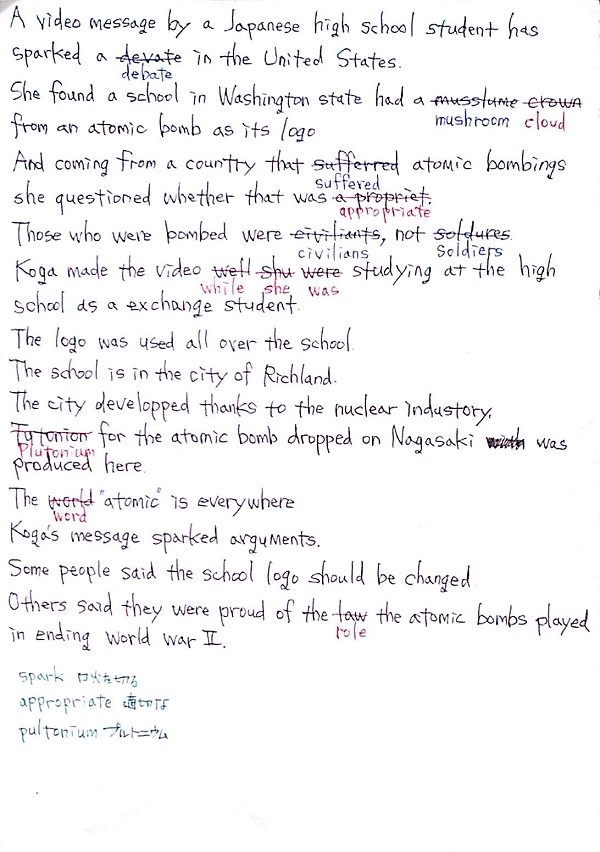 A video message by a Japanese high school student has
sparked a devate in the United States.
debate
She found a school in Washington state had a musslume crown
mushroom cloud
from an atomic bomb as its logo
And coming from a country that sufferred atomic bombings
suffered
she questioned whether that was a propriet.
appropriate
Those who were bombed were civiliants, not soldures.
civilians soldiers
Koga made the video well shu were studying at the high
while she was
school as a exchange student.
The logo was used all over the school.
The school is in the city of Richland.
The city developped thanks to the nuclear industory.
Tytonion for the atomic bomb dropped on Nagasaki was
Plutonium
produced here.
The world "atomic" is everywhere
word
Koga's message sparked arguments.
Some people said the school logo should be changed
Others said they were proud of the law the atomic bombs played
role
in ending World War II.
spark 口火を切る
appropriate 適切な
pultonium プルトニウム